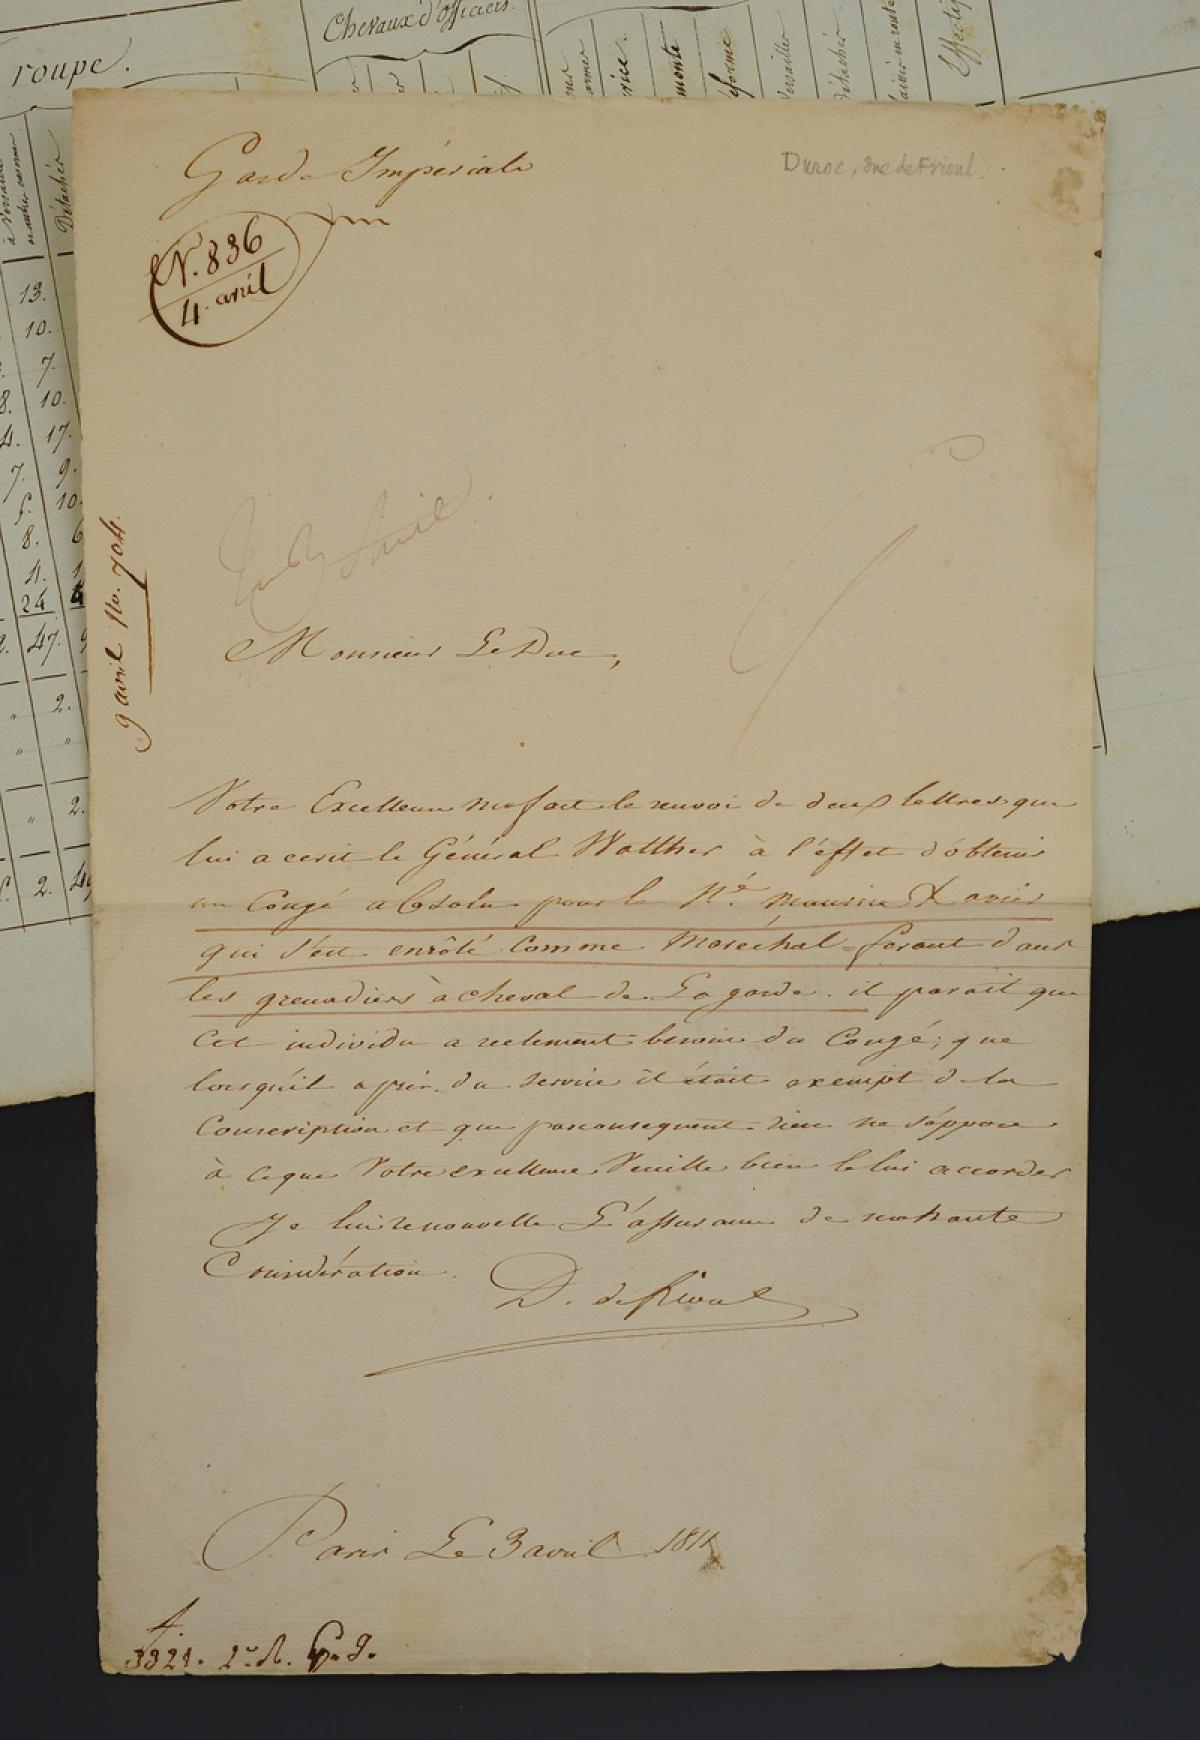 Chevaux d'Officiers.
roupe.
monté
Détachés
Effectif
Détachés
13.
10.
7.
8. 10.
4. 17.
7. 9.
5. 10.
8. 6
4. 1
24 4
47. 9
2.
2.
2. 49
Garde Impériale
Duroc, duc de Frioul.
N. 836
4. avril
9 avril No. 704.
Monsieur Le Duc,
Votre Excellence m'a fait le renvoi de deux lettres que
lui a ecrit le Général Walther à l'effet d'obtenir
un Congé absolu pour le N.é Maurice Xavier
qui s'est enrôlé comme Maréchal-ferant dans
les grenadiers à cheval de La garde. il parait que
cet individu a reelement besoin du Congé; que
lorsqu'il a pris du service il était exempt de la
Conscription et que parconsequent rien ne s'oppose
à ceque Votre excellence Veuille bien le lui accorder
Je lui renouvelle L'assurance de ma haute
Considération.
D. de frioul
Paris Le 3 avril 1811
3321. 2.e d. G. g.